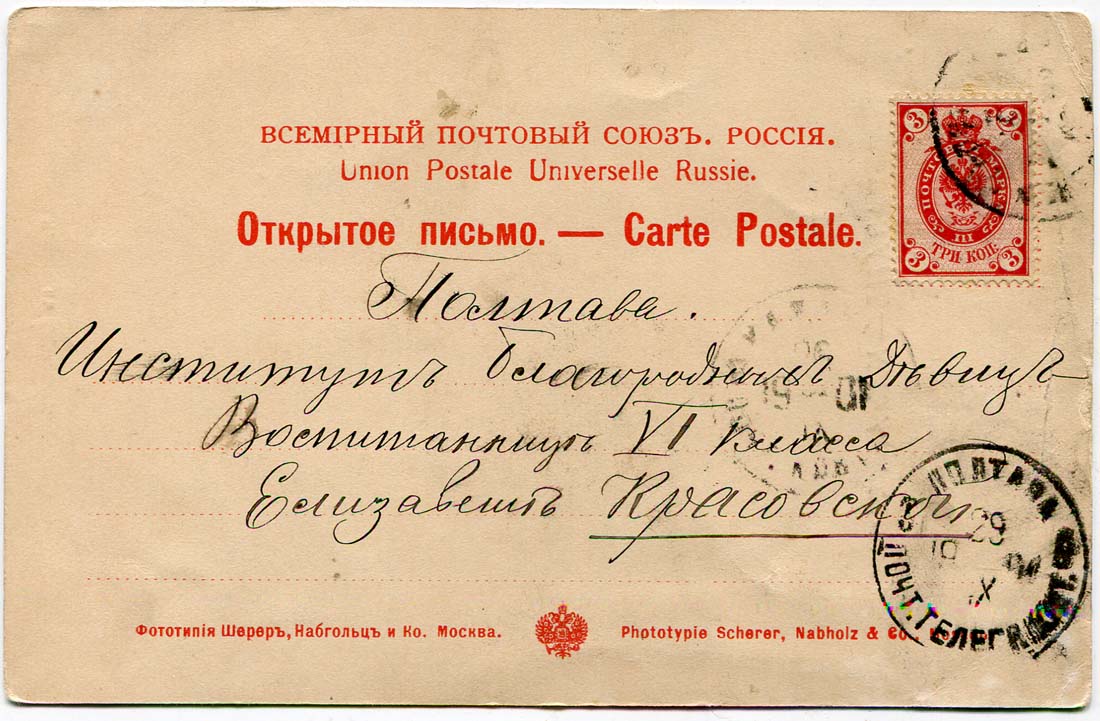 ВСЕМІРНЫЙ ПОЧТОВЫЙ СОЮЗЪ. РОССІЯ.
Union Postale Universelle Russie.
Открытое письмо. — Carte Postale.
3 3
ПОЧТОВАЯ МАРКА
III
ТРИ КОП.
3 3
Полтава.
Институтъ Благородныхъ Дѣвицъ
Воспитанницѣ VI класса
Елизаветѣ Красовской
ПОЛТАВА
29
X
ПОЧТ. ТЕЛЕГР.
Фототипія Шереръ, Набгольцъ и Ко. Москва.
Phototypie Scherer, Nabholz & Co.